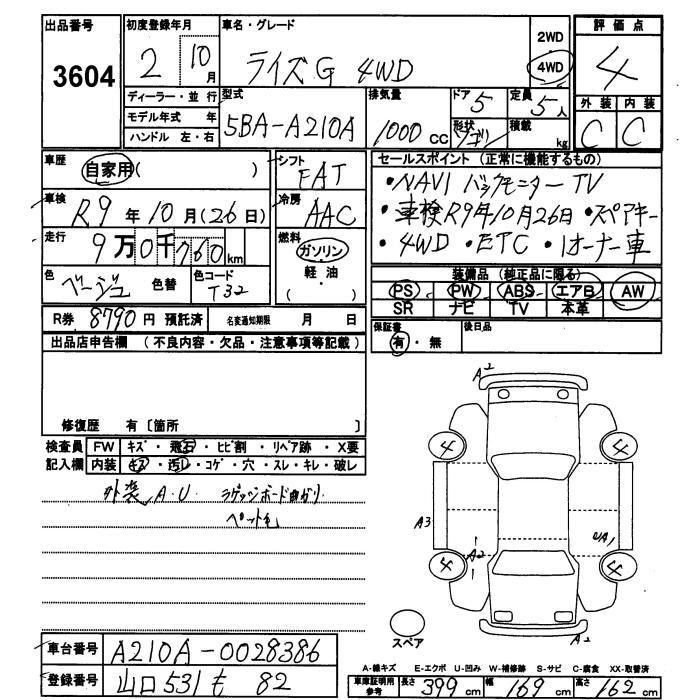 出品番号 3604
初度登録年月 2 10月
車名・グレード ライズG 4WD
2WD
4WD
評価点 4
外装 C 内装 C
ディーラー・並行
モデル年式 年
ハンドル 左・右
型式 5BA-A210A
排気量 1000 CC
ドア 5
形状 ワゴン
定員 5人
積載 kg
車歴 自家用( )
車検 R9年10月(26日)
走行 9万0千760km
色 ベージュ 色替
色コード T32
シフト FAT
冷房 AAC
燃料 ガソリン
軽油
( )
セールスポイント (正常に機能するもの)
・NAVI バックモニター TV
・車検R9年10月26日 ・スペアキー
・4WD ・ETC ・1オーナー車
装備品 (純正品に限る)
PS PW ABS エアB AW
SR ナビ TV 本革
R券 8790円 預託済
名変通知期限 月 日
保証書 有・無
後日品
出品店申告欄 (不良内容・欠品・注意事項等記載)
修復歴 有〔箇所 〕
検査員記入欄
FW キズ・飛石・ヒビ割・リペア跡・X要
内装 キズ・汚れ・コゲ・穴・スレ・キレ・破レ
外装 A.U. ラゲッジボード曲がり
ペット毛
A2
4 4
A3
A2
UA1
4 4
A2
スペア
車台番号 A210A-0028386
登録番号 山口531も 82
A-線キズ E-エクボ U-凹み W-補修跡 S-サビ C-腐食 XX-取替済
車庫証明用参考 長さ 399cm 幅 169cm 高さ 162cm